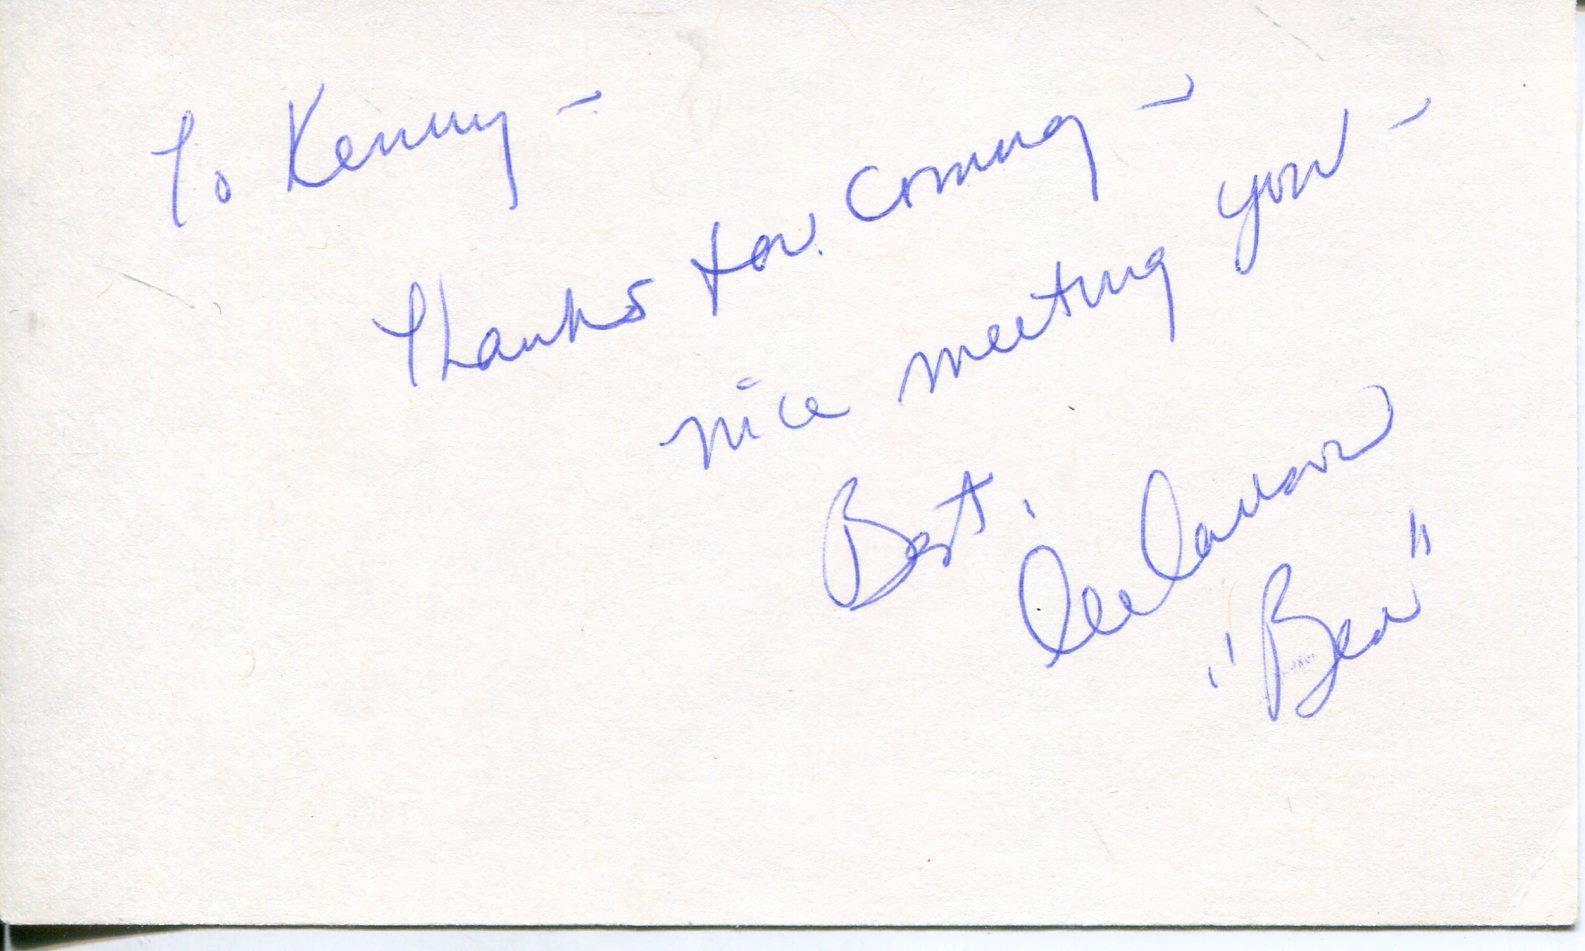 To Kenny -
Thanks for coming -
nice meeting you -
Best,
Lee
"Ben"